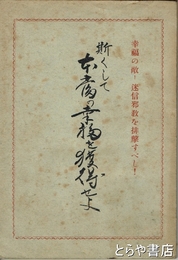 幸福の敵・迷信邪教を排撃すべし！
斯くして
本当の幸福を獲得せよ
とらや書店